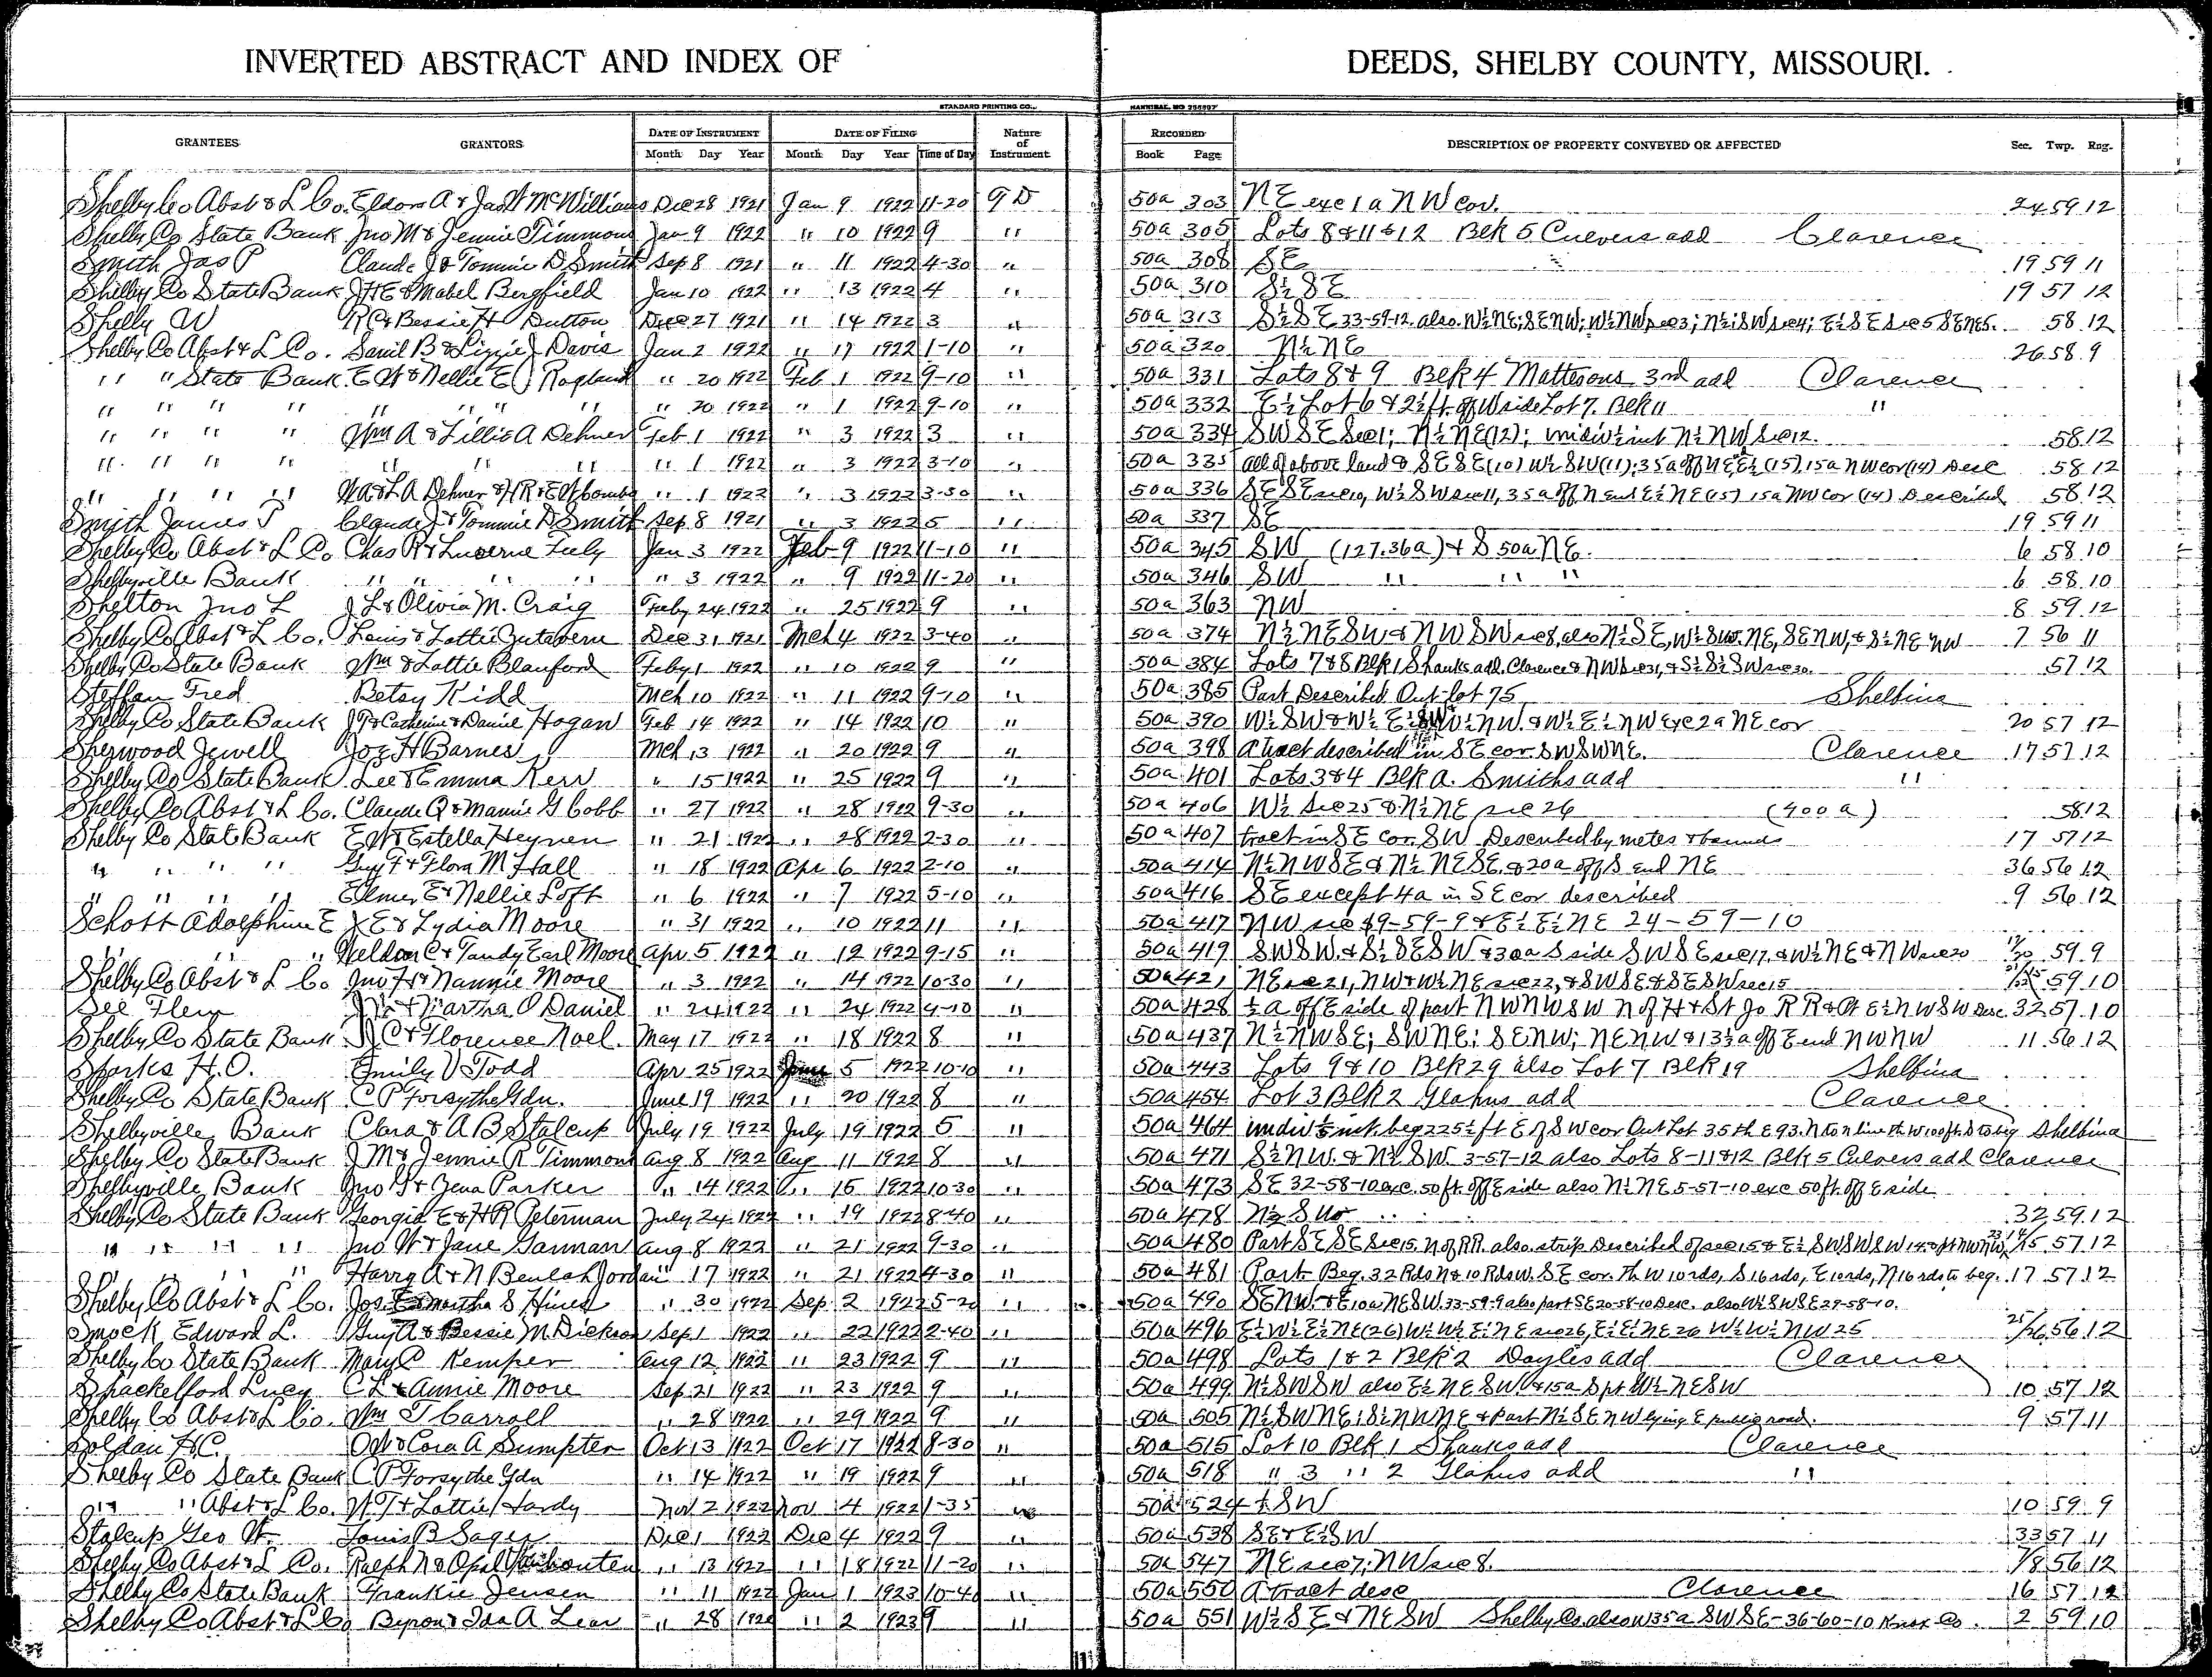 INVERTED ABSTRACT AND INDEX OF DEEDS, SHELBY COUNTY, MISSOURI.
STANDARD PRINTING CO., HANNIBAL, MO
GRANTEES GRANTORS DATE OF INSTRUMENT DATE OF FILING Nature of Instrument RECORDED DESCRIPTION OF PROPERTY CONVEYED OR AFFECTED Sec. Twp. Rng.
Month Day Year Month Day Year Time of Day Book Page
Shelby Co Abst & L Co. Eldora A & Jas W McWilliams Dec 28 1921 Jan 9 1922 11-20 GD 50a 303 NE exc 1a NW cor. 24 59 12
Shelby Co State Bank Jno M & Jennie Timmons Jan 9 1922 " 10 1922 9 " 50a 305 Lots 8 & 11 & 12 Blk 5 Culvers add Clarence
Smith Jas P Claude J & Tommie D Smith Sep 8 1921 " 11 1922 4-30 " 50a 308 SE 19 59 11
Shelby Co State Bank JHE & Mabel Bergfield Jan 10 1922 " 13 1922 4 " 50a 310 S½ SE 19 57 12
Shelby W R C & Bessie H Dutton Dec 27 1921 " 14 1922 3 " 50a 313 S½ SE 33-59-12 also W½ NE; SE NW; W½ NW sec 3; N½; SW sec 4; E½ SE sec 5 SE NE 5. 58 12
Shelby Co Abst & L Co. Saml B & Lizzie J Davis Jan 2 1922 " 17 1922 1-10 " 50a 320 N½ NE 26 58 9
" " State Bank E W & Nellie E Ragland " 20 1922 Feb 1 1922 9-10 " 50a 331 Lots 8 & 9 Blk 4 Mattesons 3rd add Clarence
" " " " " " " " " 20 1922 " 1 1922 9-10 " 50a 332 E½ Lot 6 & 2½ ft. off W side Lot 7. Blk 11 "
" " " " Wm A & Lillie A Dehner Feb 1 1922 " 3 1922 3 " 50a 334 SW SE Sec 1; N½ NE (12); undiv ½ int N½ NW Sec 12. 58 12
" " " " " " " " 1 1922 " 3 1922 3-10 " 50a 335 all of above land & SE SE (10) W½ SW (11); 35a off N E E½ (15), 15a NW cor (14) Desc 58 12
" " " " W A & L A Dehner & H R & E W Combs " 1 1922 " 3 1922 3-30 " 50a 336 SE SE sec 10, W½ SW sec 11, 35a off N end E½ NE (15) 15a NW cor (14) Described 58 12
Smith James P Claude J & Tommie D Smith Sep 8 1921 " 3 1922 5 " 50a 337 SE 19 59 11
Shelby Co Abst & L Co Chas R & Lucerne Feely Jan 3 1922 Feb 9 1922 11-10 " 50a 345 SW (127.36a) & S 50a NE. 6 58 10
Shelbyville Bank " " " " " 3 1922 " 9 1922 11-20 " 50a 346 SW " " " 6 58 10
Shelton Jno L J L & Olivia M. Craig Feby 24 1922 " 25 1922 9 " 50a 363 NW 8 59 12
Shelby Co Abst & L Co. Louis & Lottie Zutavern Dec 31 1921 Mch 4 1922 3-40 " 50a 374 N½ NE SW & NW SW sec 8, also N½ SE, W½ SW. NE, SE NW, & S½ NE NW 7 56 11
Shelby Co State Bank Wm & Lottie Blanford Feby 1 1922 " 10 1922 9 " 50a 384 Lots 7 & 8 Blk 1 Shanks add. Clarence & NW sec 31, & S½ S½ SW sec 30. 57 12
Steffan Fred Betsy Kidd Mch 10 1922 " 11 1922 9-10 " 50a 385 Part Described Out-lot 75 Shelbina
Shelby Co State Bank J T & Catherine & Daniel Hogan Feb 14 1922 " 14 1922 10 " 50a 390 W½ SW & W½ E½ SW W½ NW. & W½ E½ NW exc 2a NE cor 20 57 12
Sherwood Jewell Joe H Barnes Mch 13 1922 " 20 1922 9 " 50a 398 a tract described in SE cor. SW SW NE. Clarence 17 57 12
Shelby Co State Bank Lee & Emma Kerr " 15 1922 " 25 1922 9 " 50a 401 Lots 3 & 4 Blk A. Smiths add "
Shelby Co Abst & L Co. Claude Q & Mamie G Cobb " 27 1922 " 28 1922 9-30 " 50a 406 W½ Sec 25 & N½ NE sec 26 (400 a) 58 12
Shelby Co State Bank E W & Estella Heynen " 21 1922 " 28 1922 2-30 " 50a 407 tract in SE cor. SW Described by metes & bounds 17 57 12
" " " " Guy F & Flora M Hall " 18 1922 Apr 6 1922 2-10 " 50a 414 N½ NW SE & N½ NE SE. & 20a off S end NE 36 56 12
" " " " Elmer E & Nellie Loft " 6 1922 " 7 1922 5-10 " 50a 416 SE except 4a in SE cor described 9 56 12
Schott Adolphine E J E & Lydia Moore " 31 1922 " 10 1922 11 " 50a 417 NW sec 19-59-9 & E½ E½ NE 24-59-10
" " Weldon C & Tandy Earl Moore Apr 5 1922 " 12 1922 9-15 " 50a 419 SW SW. & S½ SE SW & 30a S side SW SE sec 17, & W½ NE & NW sec 20 17/20 59 9
Shelby Co Abst & L Co Jno H & Nannie Moore " 3 1922 " 14 1922 10-30 " 50a 421 NE sec 21, NW & W½ NE sec 22, & SW SE & SE SW sec 15 59 10
See Flem & Martha O Daniel " 24 1922 " 24 1922 4-10 " 50a 428 ½ a off E side of part NW NW SW N of H & St Jo RR & Pt E½ NW SW Desc. 32 57 10
Shelby Co State Bank J C & Florence Noel. May 17 1922 " 18 1922 8 " 50a 437 N½ NW SE; SW NE; SE NW; NE NW & 13⅓ a off E end NW NW 11 56 12
Sparks H. O. Emily V Todd Apr 25 1922 June 5 1922 10-10 " 50a 443 Lots 9 & 10 Blk 29 also Lot 7 Blk 19 Shelbina
Shelby Co State Bank C P Forsythe Gdn. June 19 1922 " 20 1922 8 " 50a 454 Lot 3 Blk 2 Glahns add Clarence
Shelbyville Bank Clara & A B Stalcup July 19 1922 July 19 1922 5 " 50a 464 undiv int. beg 225½ ft E of SW cor Out Lot 35 th E 93. N to n line th W 100 ft. S to beg Shelbina
Shelby Co State Bank J M & Jennie R Timmons Aug 8 1922 Aug 11 1922 8 " 50a 471 S½ NW. & N½ SW. 3-57-12 also Lots 8-11 & 12 Blk 5 Culvers add Clarence
Shelbyville Bank Jno G & Zena Parker " 14 1922 " 15 1922 10-30 " 50a 473 SE 32-58-10 exc. 50 ft. off E side also N½ NE 5-57-10 exc 50 ft. off E side
Shelby Co State Bank Georgia E & H R Peterman July 24 1922 " 19 1922 8-40 " 50a 478 N½ SW 32 59 12
" " " " Jno W & Jane Garman Aug 8 1922 " 21 1922 9-30 " 50a 480 Part SE SE Sec 15. N of RR. also strip Described of sec 15 & E½ SW SW SW 14 57 12
" " " Harry A & N Beulah Jordan " 17 1922 " 21 1922 4-30 " 50a 481 Part Beg. 32 Rds N & 10 Rds W. SE cor. Th W 10 rds, S 16 rds, E 10 rds, N 16 rds to beg. 17 57 12
Shelby Co Abst & L Co. Jos. E & Martha S Hines " 30 1922 Sep 2 1922 5-20 " 50a 490 SE NW. & E 10a NE SW. 33-59-9 also part SE 20-58-10 Desc. also W½ SW SE 29-58-10.
Smock Edward L. Guy A & Bessie M. Dickson Sep 1 1922 " 22 1922 2-40 " 50a 496 E½ W½ E½ NE (26) W½ W½ E½ NE sec 26, E½ E½ NE 26 W½ W½ NW 25 25/26 56 12
Shelby Co State Bank Mary C Kemper Aug 12 1922 " 23 1922 9 " 50a 498 Lots 1 & 2 Blk 2 Doyles add Clarence
Shackelford Lucy C L & Annie Moore Sep 21 1922 " 23 1922 9 " 50a 499 N½ SW SW also E½ NE SW & 15a S pt W½ NE SW 10 57 12
Shelby Co Abst & L Co. Wm T Carroll " 28 1922 " 29 1922 9 " 50a 505 N½ SW NE; S½ NW NE & Part N½ SE NW lying E public road. 9 57 11
Soldan H C. O W & Cora A Sumpter Oct 13 1922 Oct 17 1922 8-30 " 50a 515 Lot 10 Blk 1 Shanks add Clarence
Shelby Co State Bank C P Forsythe Gdn " 14 1922 " 19 1922 9 " 50a 518 " 3 " 2 Glahns add "
" " Abst & L Co. W T & Lottie Hardy Nov 2 1922 Nov 4 1922 1-35 " 50a 524 ½ SW 10 59 9
Stalcup Geo W. Louis B Sager Dec 1 1922 Dec 4 1922 9 " 50a 538 SE & E½ SW 33 57 11
Shelby Co Abst & L Co. Ralph N & Opal Vanhouten " 13 1922 " 18 1922 11-20 " 50a 547 NE sec 7; NW sec 8. 7/8 56 12
Shelby Co State Bank Frankie Jensen " 11 1922 Jan 1 1923 10-40 " 50a 550 A tract desc Clarence 16 57 12
Shelby Co Abst & L Co Byron & Ida A Lear " 28 1922 " 2 1923 9 " 50a 551 W½ SE & NE SW Shelby Co. also W 35a SW SE-36-60-10 Knox Co. 2 59 10